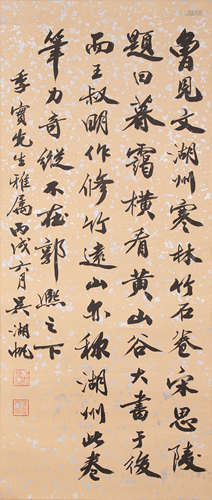 曾见文湖州寒林竹石卷宋思陵
题曰暮霭横看黄山谷大书于後
而王叔明作修竹遠山亦称湖州此卷
筆力奇縱不在郭熙之下
季寳先生雅属丙戌六月吴湖帆